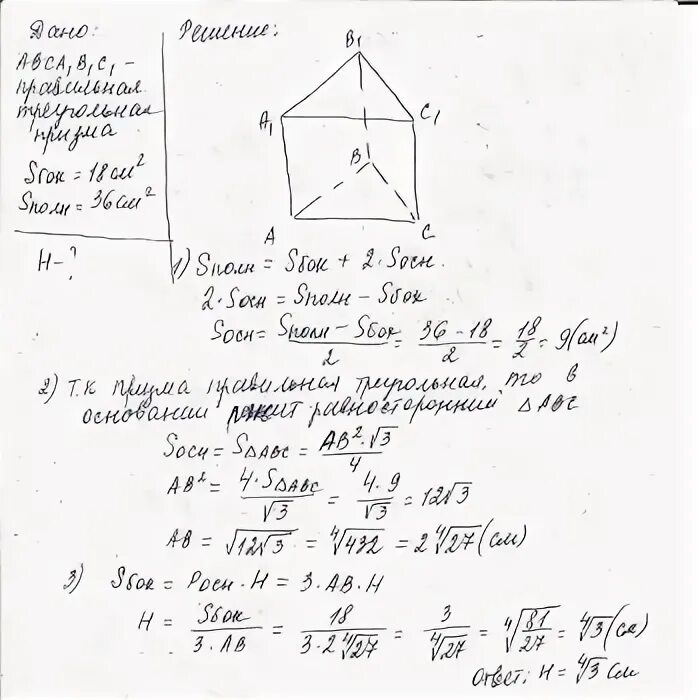 Дано:
ABCA₁B₁C₁ –
правильная
треугольная
призма
Sбок = 18 см²
Sполн = 36 см²
H – ?
Решение:
B₁
A₁
C₁
B
A
C
1) Sполн = Sбок + 2·Sосн.
2·Sосн = Sполн – Sбок
Sосн = (Sполн – Sбок)/2 = (36 – 18)/2 = 18/2 = 9 (см²)
2) Т.к призма правильная треугольная, то в
основании лежит равносторонний △ABC
Sосн = S△ABC = AB²·√3/4
AB² = 4·S△ABC/√3 = 4·9/√3 = 12√3
AB = √(12√3) = ⁴√432 = 2⁴√27 (см)
3) Sбок = Pосн·H = 3·AB·H
H = Sбок/(3·AB) = 18/(3·2⁴√27) = 3/⁴√27 = ⁴√(81/27) = ⁴√3 (см)
Ответ: H = ⁴√3 см